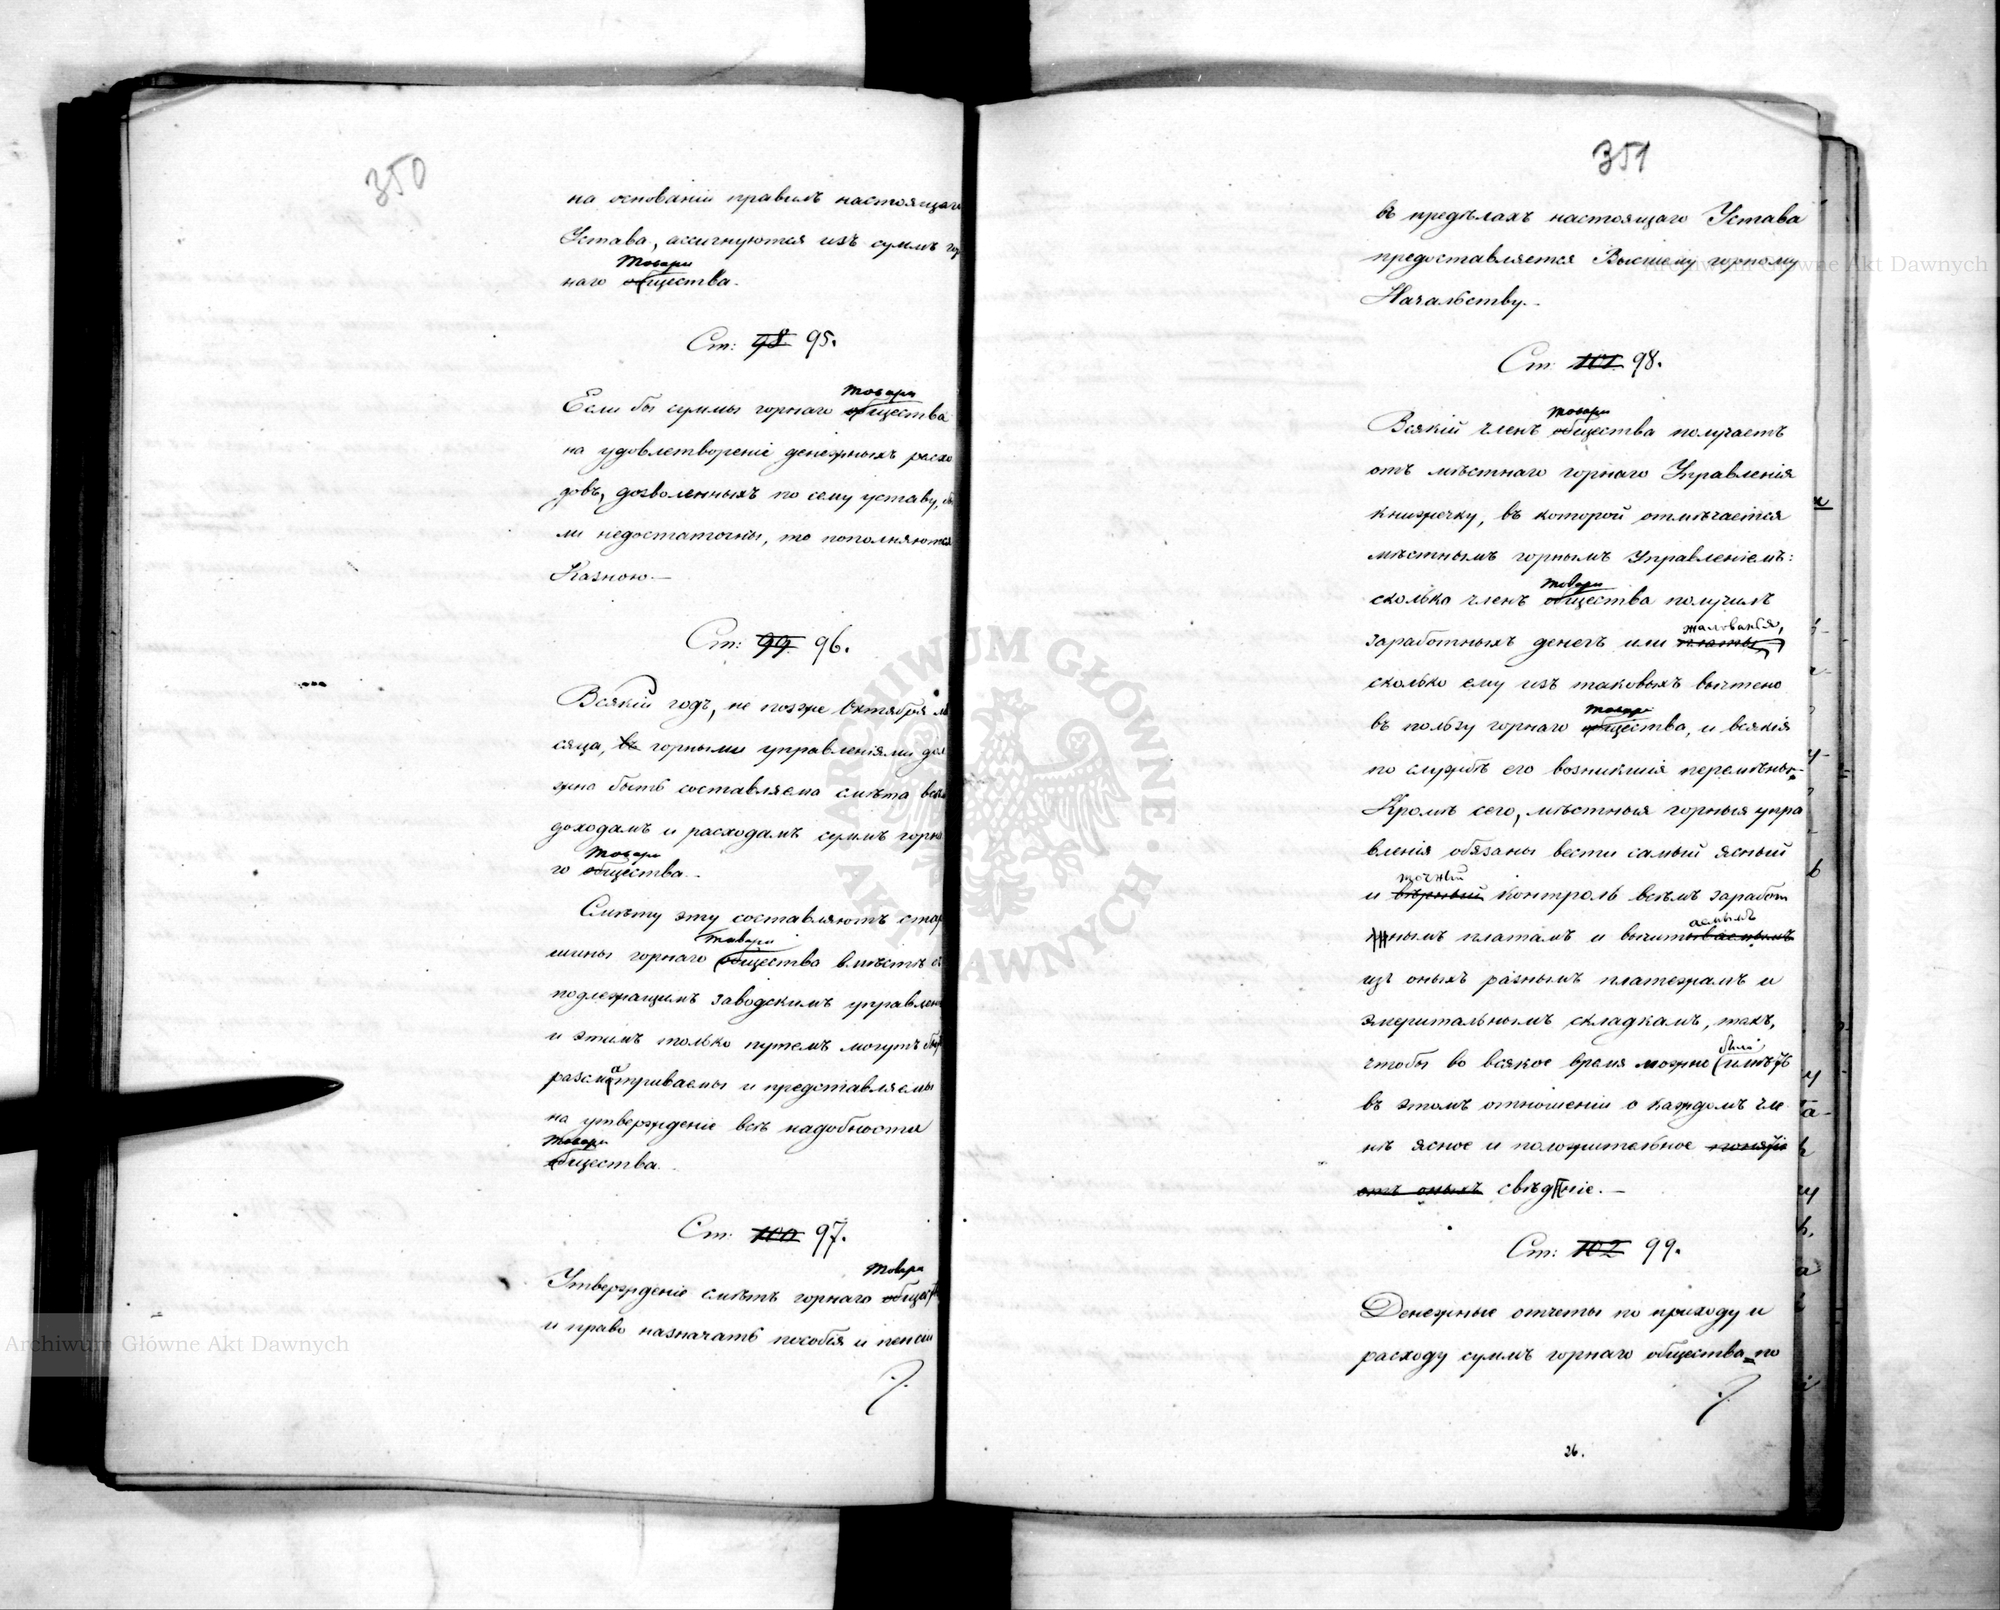 350
на основаніи правилъ настоящаго
Устава, ассигнуются изъ суммъ гор
Товари
наго общества.
Ст: 98 95.
Товари
Если бы суммы горнаго общества
на удовлетвореніе денежныхъ расхо
довъ, дозволенныхъ по сему уставу, бы
ли недостаточны, то пополняются
Казною.—
Ст: 99 96.
Всякій годъ, не позже Октября мѣ
сяца, въ горными управленіями дол
жна быть составляема смѣта всѣмъ
доходамъ и расходамъ суммъ горна
Товари
го общества.
Смѣту эту составляютъ стар
Товари
шины горнаго общества вмѣстѣ съ
подлежащимъ заводскимъ управлен
и этимъ только путемъ могутъ быть
разсматриваемы и представляемы
на утвержденіе всѣ надобности
Товари
общества.
Ст: 100 97.
Товари
Утвержденіе смѣтъ горнаго общест
и право назначать пособія и пенсіи
./.
351
въ предѣлахъ настоящаго Устава
предоставляется Высшему горному
Начальству.—
Ст: 101 98.
Товари
Всякій членъ общества получаетъ
отъ мѣстнаго горнаго Управленія
книжечку, въ которой отмѣчается
мѣстнымъ горнымъ Управленіемъ:
Товари
сколько членъ общества получилъ
жалованья,
заработныхъ денегъ или платы,
сколько ему изъ таковыхъ вычтено
Товари
въ пользу горнаго общества, и всякія
по службѣ его возникшія перемѣны.
Кромѣ сего, мѣстныя горныя упра
вленія обязаны вести самый ясный
точный
и вѣрный контроль всѣмъ заработ
аемымъ
нымъ платамъ и вычитываемымъ
изъ оныхъ разнымъ платежамъ и
эмеритальнымъ складкамъ, такъ,
было
чтобы во всякое время можно имѣть
въ этомъ отношеніи о каждомъ чле
нѣ ясное и положительное понятіе
отъ оныхъ свѣдѣніе.—
Ст: 102 99.
Денежные отчеты по приходу и
расходу суммъ горнаго общества по
./.
26.
Archiwum Główne Akt Dawnych
Archiwum Główne Akt Dawnych
ARCHIWUM GŁÓWNE AKT DAWNYCH